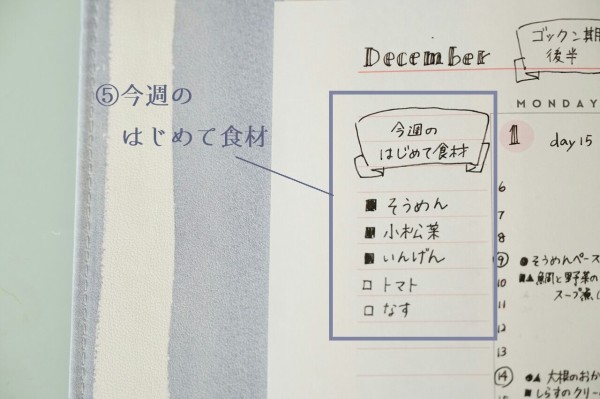 ⑤今週の
はじめて食材
December
ゴックン期
後半
今週の
はじめて食材
■ そうめん
■ 小松菜
■ いんげん
□ トマト
□ なす
MONDAY
1 day 15
6
7
8
9 ●そうめんペー
10 ■▲鯛と野菜の
11 スープ煮
12
13
14 ●▲ 大根のおか
■ しらすのクリー